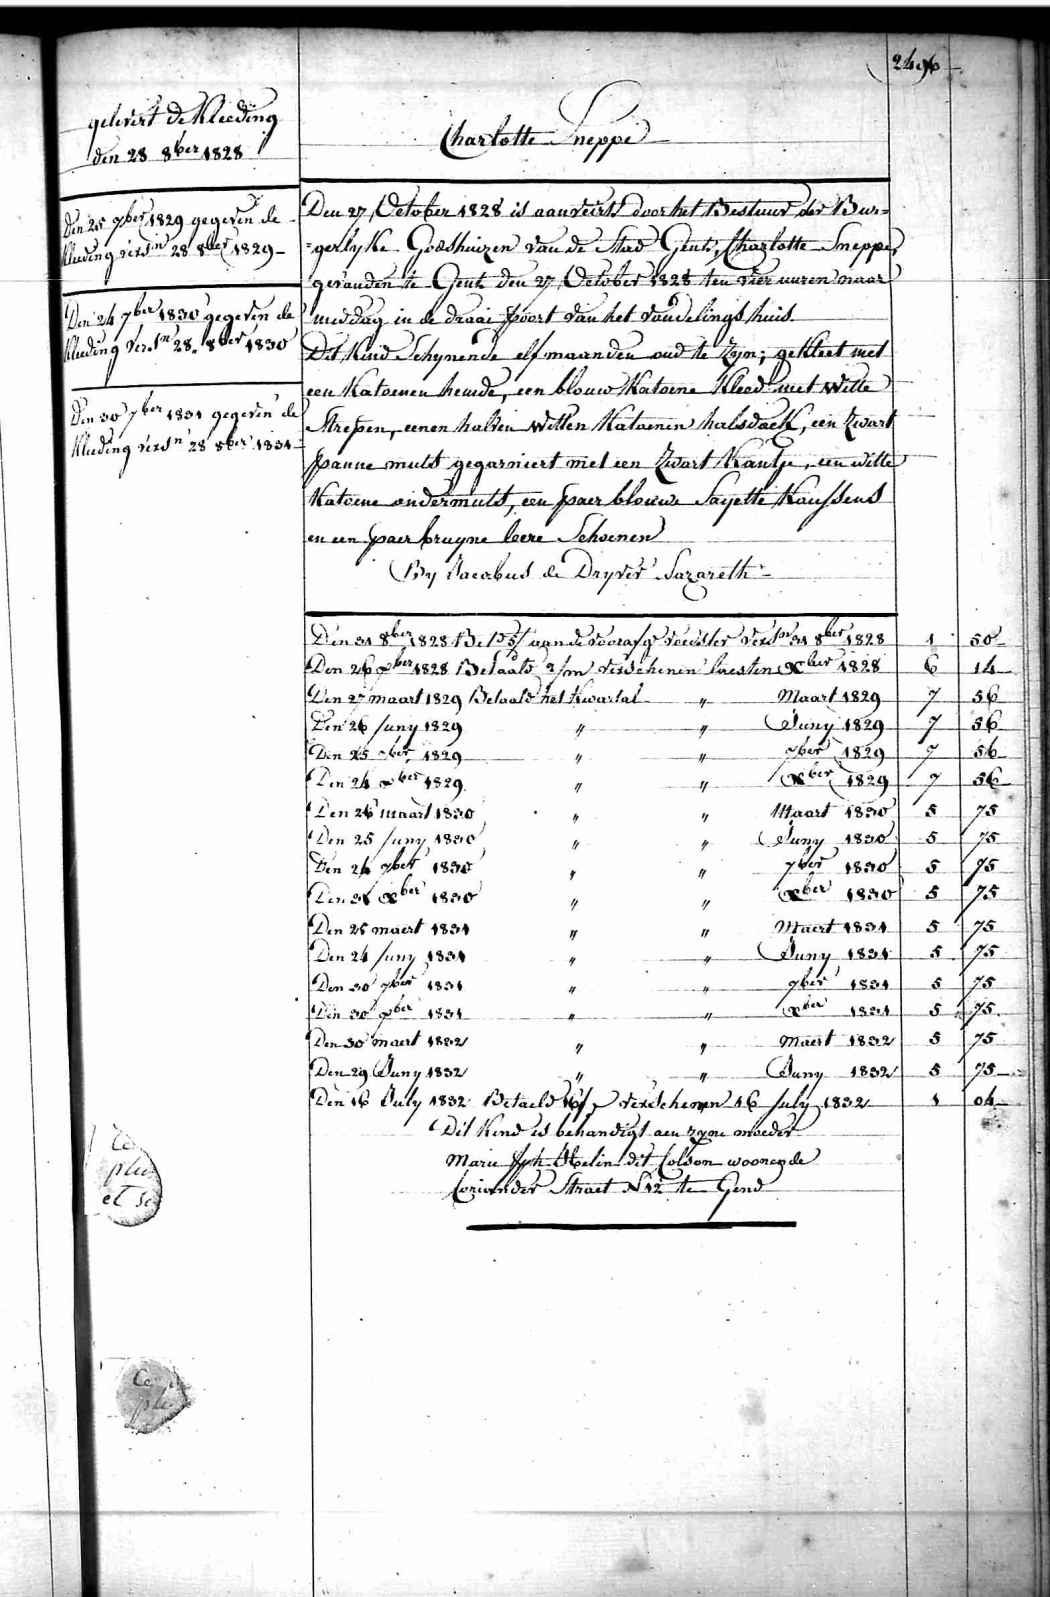 2496
gelevert de Kleeding
den 28 8ber 1828
Den 25 7ber 1829 gegeven de
kleeding versn 28 8ber 1829
Den 24 7ber 1830 gegeven de
kleeding versn 28 8ber 1830
Den 30 7ber 1831 gegeven de
kleeding versn 28 8ber 1831
Charlotte Sneppe
Den 27 October 1828 is aanveirt door het Bestuur der Bur=
=gerlyke Godshuizen van de Stad Gent, Charlotte Sneppe,
gevonden te Gent den 27 October 1828 ten vier uuren naar
middag in de draai poort van het vondelings huis
Dit Kind Schynende elf maanden oud te Zyn; gekleet met
een Katoenen hemde, een blouw Katoene Kleed met Witte
Strepen, eenen halven Witten Katoenen halsdoek, een Zwart
panne muts gegarniert met een Zwart Kantje, een witte
Katoene ondermuts, een paer blouwe Sayette Kaussens
en een paer bruyne leere Schoenen
By Jacobus de Dryver Nazareth
Den 31 8ber 1828 Be 15/ aan de voorafg voedster versn 31 8ber 1828 1 50
Den 26 xber 1828 Betaald 2/m verschenen laesten Xber 1828 6 14
Den 27 maart 1829 Betaald het Kwartal " Maart 1829 7 56
Den 26 Juny 1829 " " Juny 1829 7 56
Den 25 7ber 1829 " " 7ber 1829 7 56
Den 24 xber 1829 " " Xber 1829 7 56
Den 26 maart 1830 " " Maart 1830 5 75
Den 25 Juny 1830 " " Juny 1830 5 75
Den 24 7ber 1830 " " 7ber 1830 5 75
Den 31 Xber 1830 " " Xber 1830 5 75
Den 25 maert 1831 " " Maert 1831 5 75
Den 24 Juny 1831 " " Juny 1831 5 75
Den 30 7ber 1831 " " 7ber 1831 5 75
Den 30 xber 1831 " " Xber 1831 5 75
Den 30 maert 1832 " " Maert 1832 5 75
Den 29 Juny 1832 " " Juny 1832 5 75
Den 16 July 1832 Betaeld 16/ verschenen 16 July 1832 1 04
Dit Kind is behandigt aen zyne moeder
Marie Jph dit Colson woonende
Straet N 12 te Gend